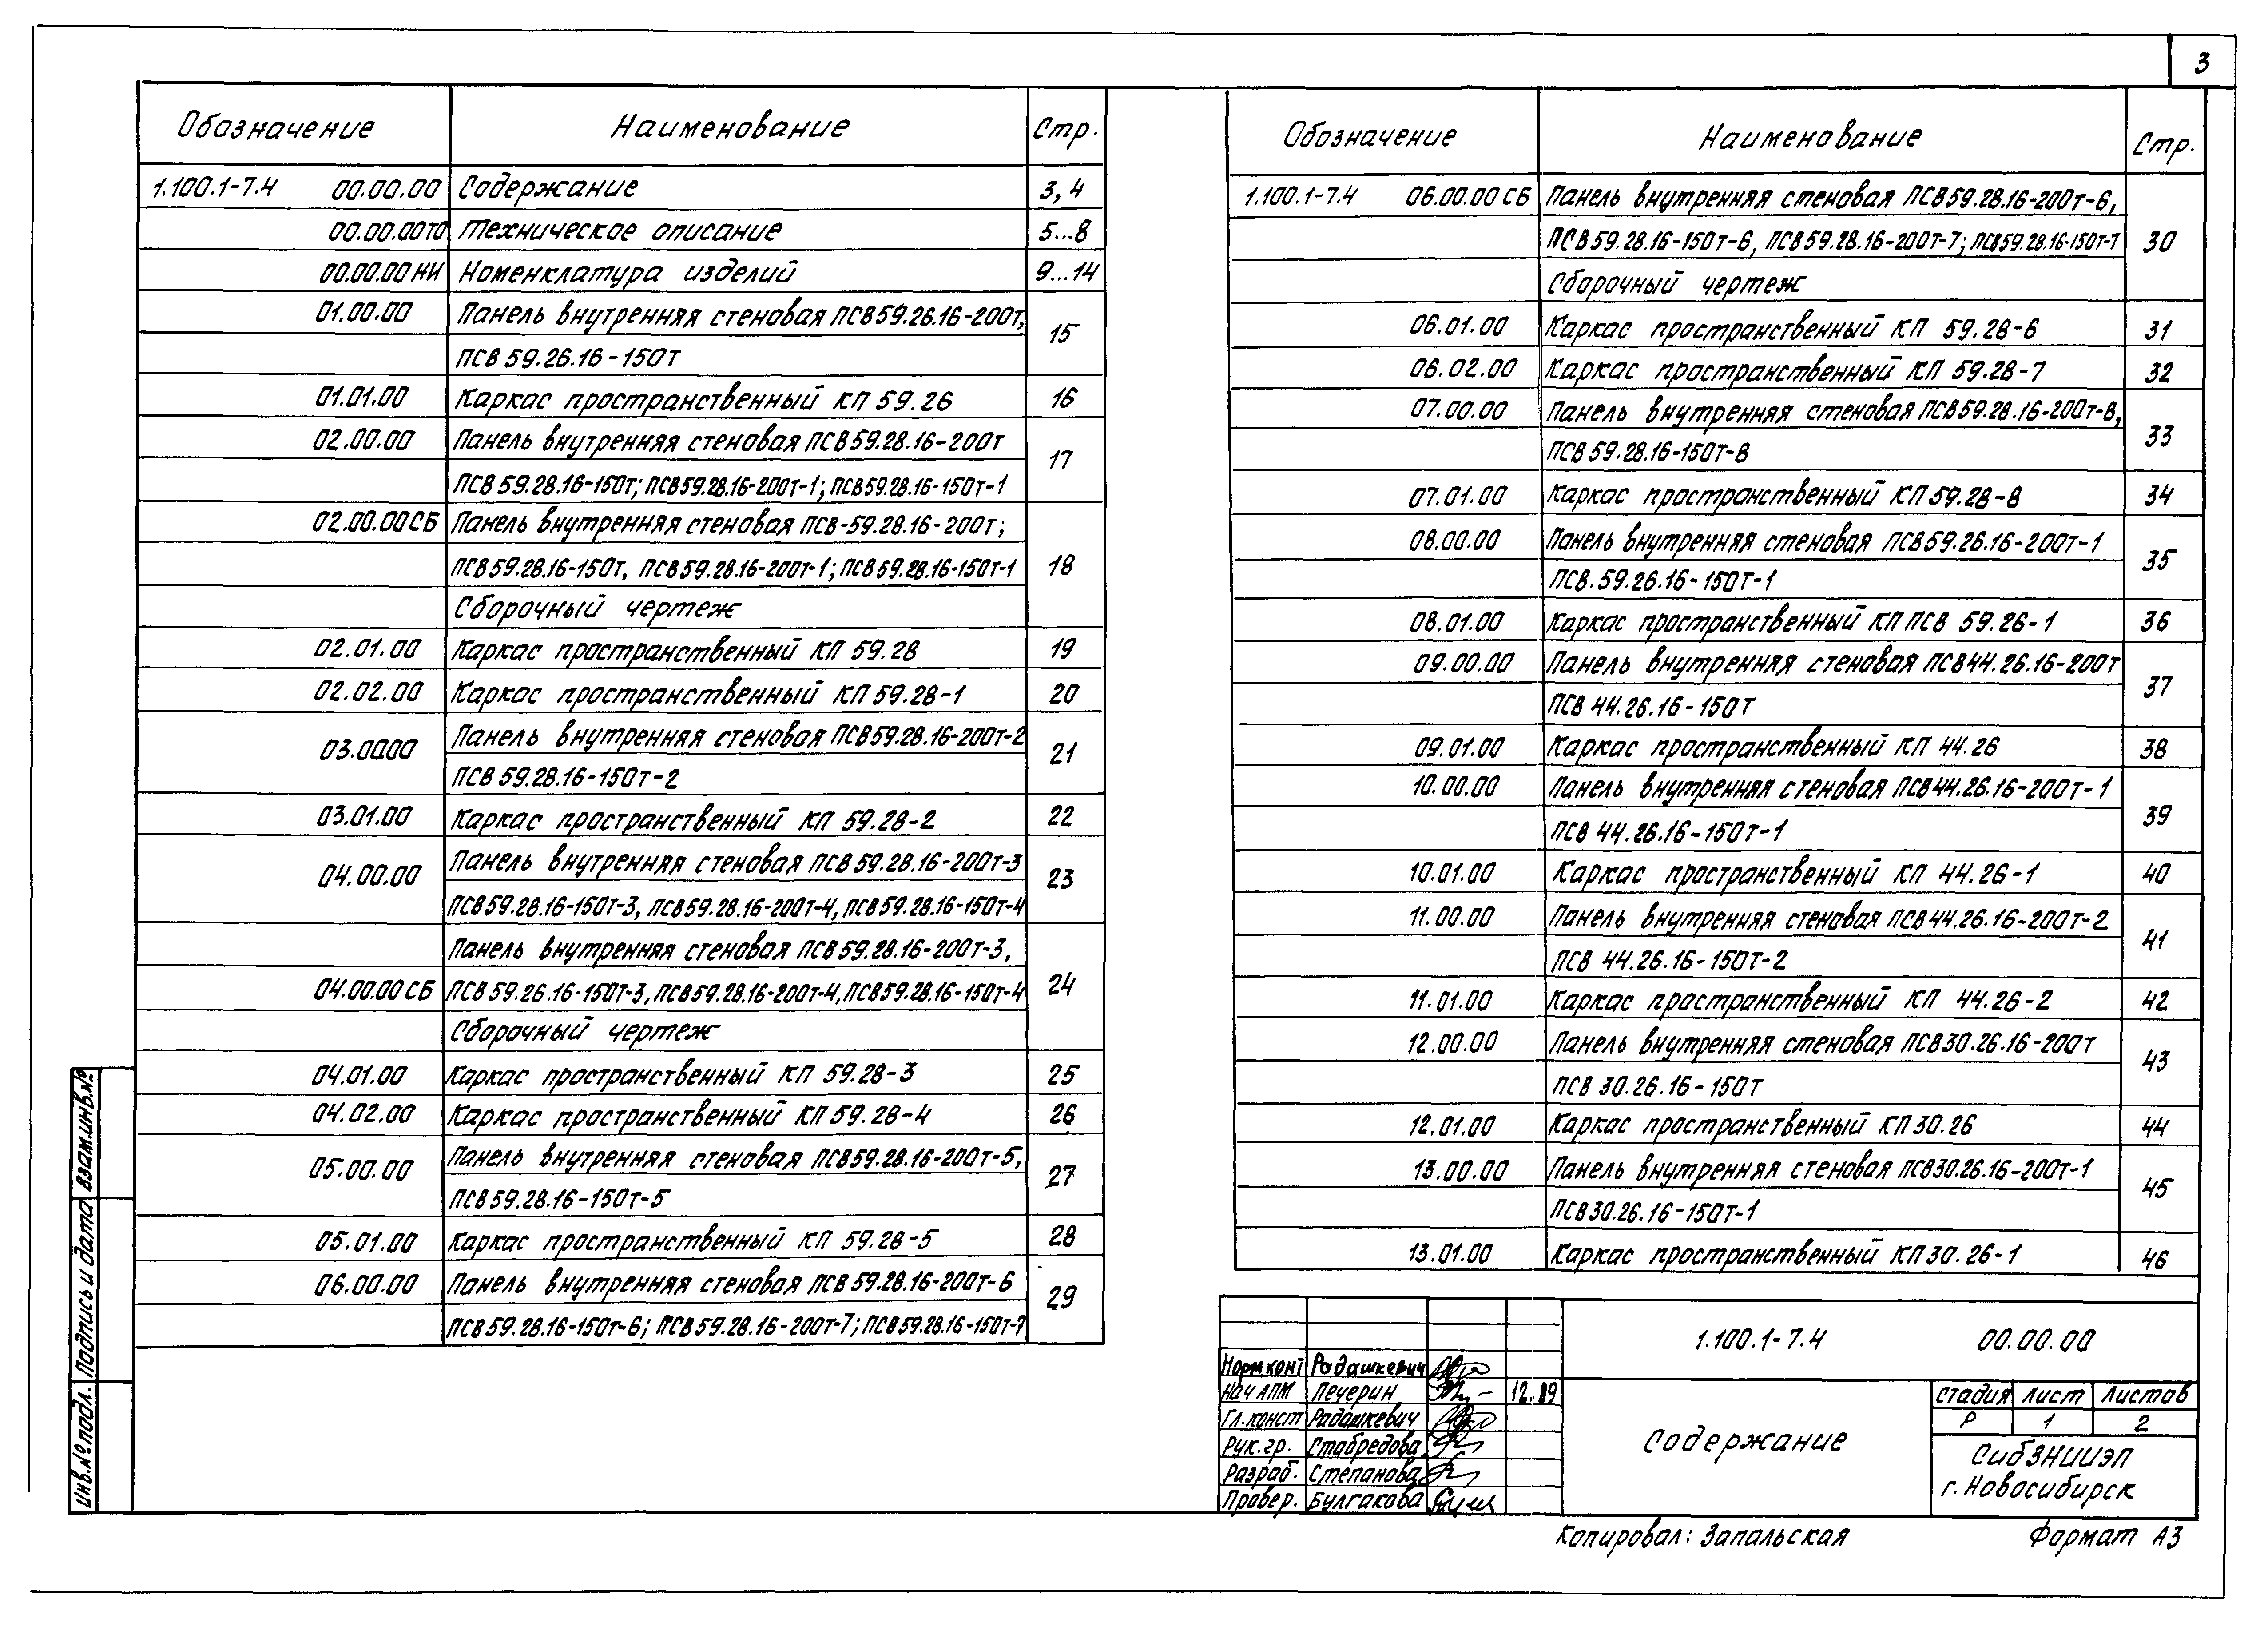 3
Обозначение Наименование Стр.
1.100.1-7.4 00.00.00 Содержание 3,4
00.00.00ТО Техническое описание 5...8
00.00.00 НИ Номенклатура изделий 9...14
01.00.00 Панель внутренняя стеновая ПСВ59.26.16-200т, 15
ПСВ 59.26.16-150т
01.01.00 Каркас пространственный КП 59.26 16
02.00.00 Панель внутренняя стеновая ПСВ 59.28.16-200т 17
ПСВ 59.28.16-150т; ПСВ59.28.16-200т-1; ПСВ59.28.16-150т-1
02.00.00СБ Панель внутренняя стеновая ПСВ-59.28.16-200т; 18
ПСВ59.28.16-150т, ПСВ59.28.16-200т-1; ПСВ59.28.16-150т-1
Сборочный чертеж
02.01.00 Каркас пространственный КП 59.28 19
02.02.00 Каркас пространственный КП 59.28-1 20
03.0000 Панель внутренняя стеновая ПСВ59.28.16-200т-2 21
ПСВ 59.28.16-150т-2
03.01.00 Каркас пространственный КП 59.28-2 22
04.00.00 Панель внутренняя стеновая ПСВ 59.28.16-200т-3 23
ПСВ59.28.16-150т-3, ПСВ59.28.16-200т-4, ПСВ59.28.16-150т-4
Панель внутренняя стеновая ПСВ 59.28.16-200т-3,
04.00.00 СБ ПСВ 59.26.16-150т-3, ПСВ59.28.16-200т-4, ПСВ59.28.16-150т-4 24
Сборочный чертеж
04.01.00 Каркас пространственный КП 59.28-3 25
04.02.00 Каркас пространственный КП 59.28-4 26
05.00.00 Панель внутренняя стеновая ПСВ59.28.16-200т-5, 27
ПСВ59.28.16-150т-5
05.01.00 Каркас пространственный КП 59.28-5 28
06.00.00 Панель внутренняя стеновая ПСВ 59.28.16-200т-6 29
ПСВ 59.28.16-150т-6; ПСВ 59.28.16-200т-7; ПСВ 59.28.16-150т-7
Обозначение Наименование Стр.
1.100.1-7.4 06.00.00 СБ Панель внутренняя стеновая ПСВ59.28.16-200т-6, 30
ПСВ 59.28.16-150т-6, ПСВ59.28.16-200т-7; ПСВ59.28.16-150т-7
Сборочный чертеж
06.01.00 Каркас пространственный КП 59.28-6 31
06.02.00 Каркас пространственный КП 59.28-7 32
07.00.00 Панель внутренняя стеновая ПСВ59.28.16-200т-8, 33
ПСВ 59.28.16-150т-8
07.01.00 Каркас пространственный КП 59.28-8 34
08.00.00 Панель внутренняя стеновая ПСВ59.26.16-200т-1 35
ПСВ.59.26.16-150т-1
08.01.00 Каркас пространственный КП ПСВ 59.26-1 36
09.00.00 Панель внутренняя стеновая ПСВ44.26.16-200т 37
ПСВ 44.26.16-150т
09.01.00 Каркас пространственный КП 44.26 38
10.00.00 Панель внутренняя стеновая ПСВ44.26.16-200т-1 39
ПСВ 44.26.16-150т-1
10.01.00 Каркас пространственный КП 44.26-1 40
11.00.00 Панель внутренняя стеновая ПСВ44.26.16-200т-2 41
ПСВ 44.26.16-150т-2
11.01.00 Каркас пространственный КП 44.26-2 42
12.00.00 Панель внутренняя стеновая ПСВ30.26.16-200т 43
ПСВ 30.26.16-150т
12.01.00 Каркас пространственный КП 30.26 44
13.00.00 Панель внутренняя стеновая ПСВ30.26.16-200т-1 45
ПСВ30.26.16-150т-1
13.01.00 Каркас пространственный КП 30.26-1 46
Инв.№ подл. Подпись и дата Взам.инв.№
1.100.1-7.4 00.00.00
Норм.конт Радашкевич
Нач АПМ Печерин 12.89
Гл.конст Радашкевич
Рук.гр. Стабредова
Разраб. Степанова
Провер. Булгакова
Содержание
стадия лист листов
Р 1 2
СибЗНИИЭП
г.Новосибирск
Копировал: Запальская Формат А3